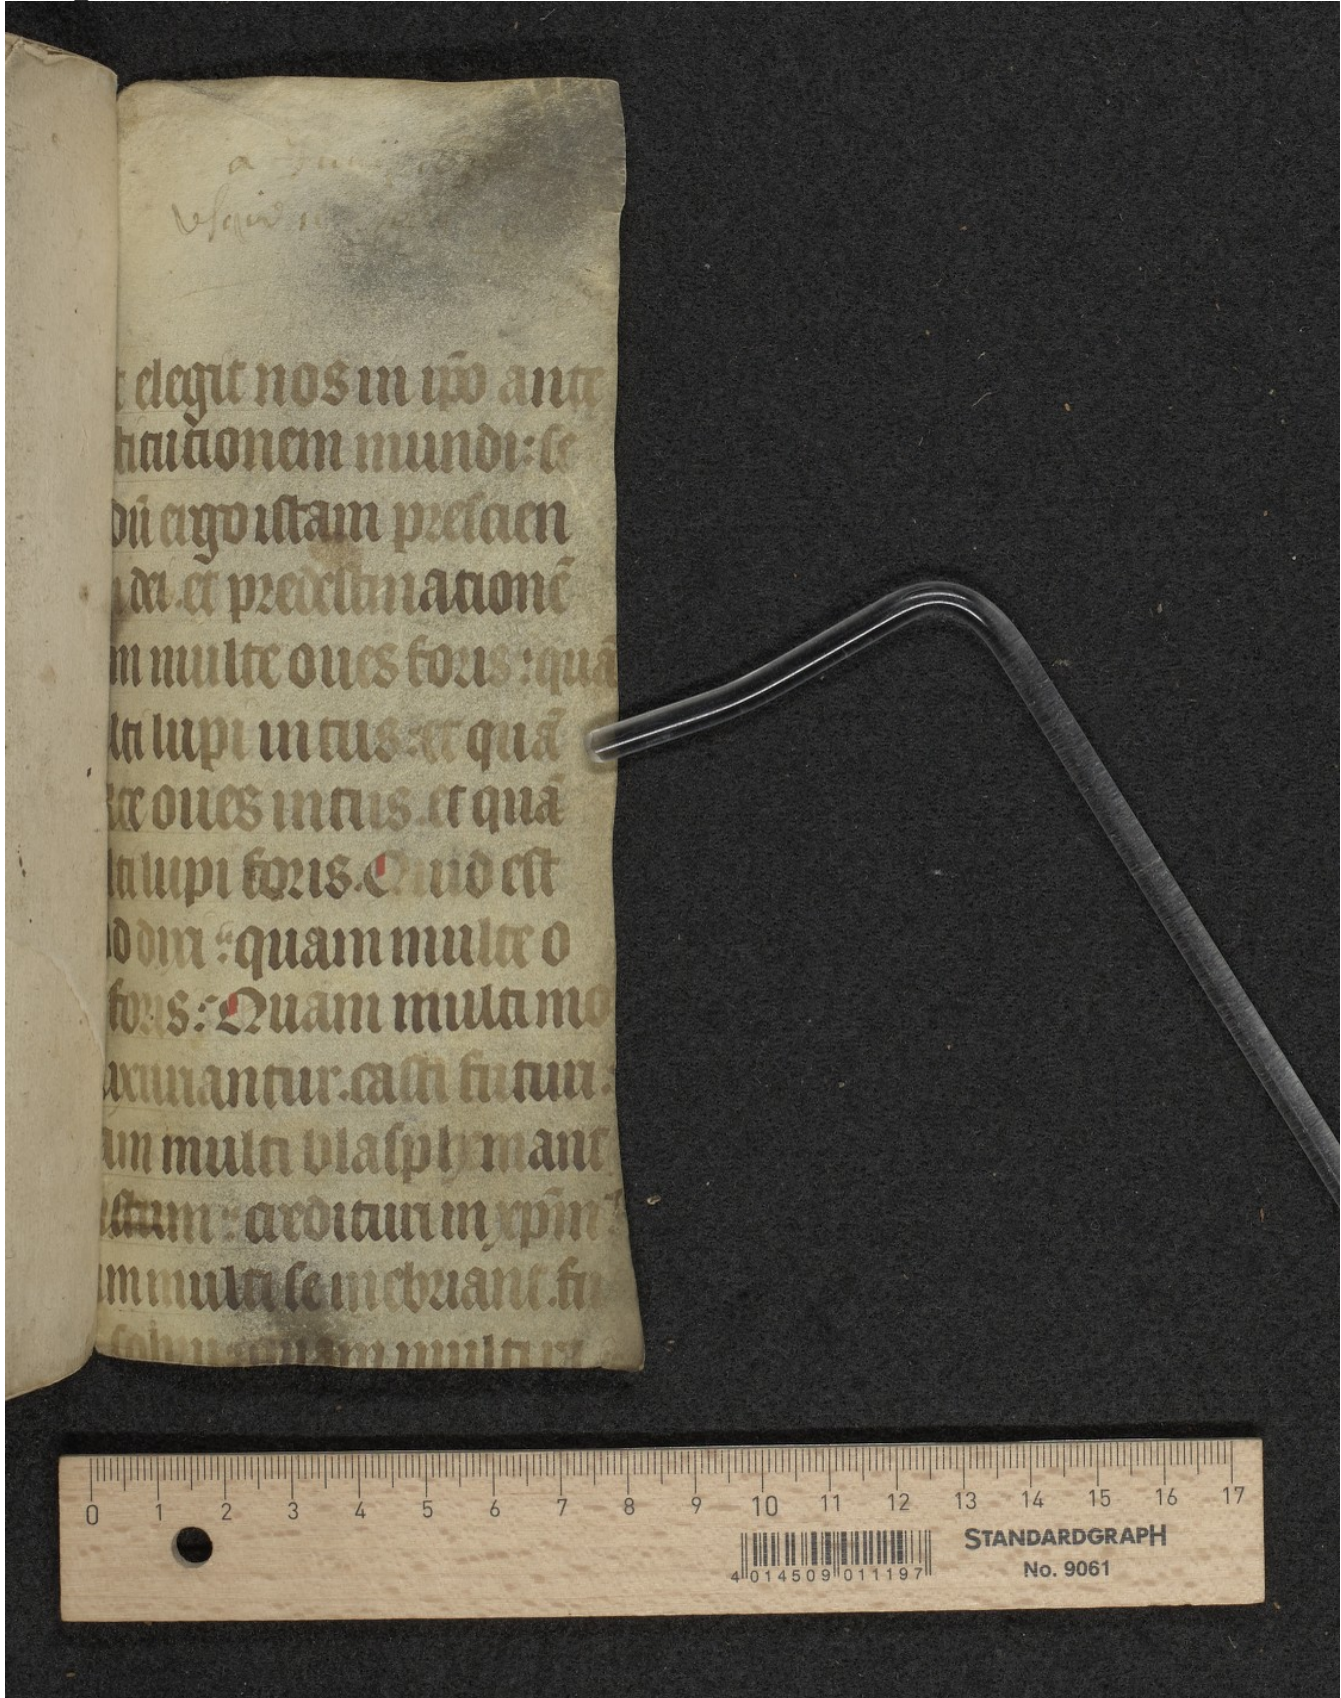 a
elegit nos in ip̄o ante
titutionem mundi: se
dū ergo istam prescien
dei. et predestinationē
m multe oues foris: quā
lti lupi intus. et quā
te oues intus. et quā
lti lupi foris. Quid est
d dixi: quam multe o
foris: Quam multi mo
uxuriantur. casti futuri:
am multi blasphemant
istum: credituri in xp̄m:
m multi se inebriant. fu
sobrii: quam multi
0 1 2 3 4 5 6 7 8 9 10 11 12 13 14 15 16 17
STANDARDGRAPH
No. 9061
4 014509 011197